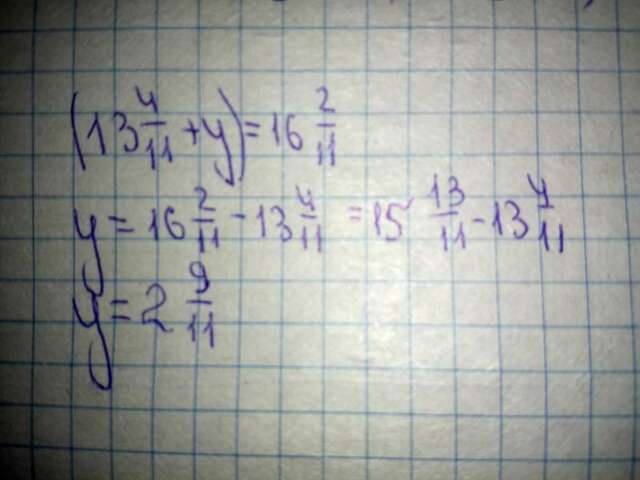 (13 4/11 + y) = 16 2/11
y = 16 2/11 - 13 4/11 = 15 13/11 - 13 4/11
y = 2 9/11